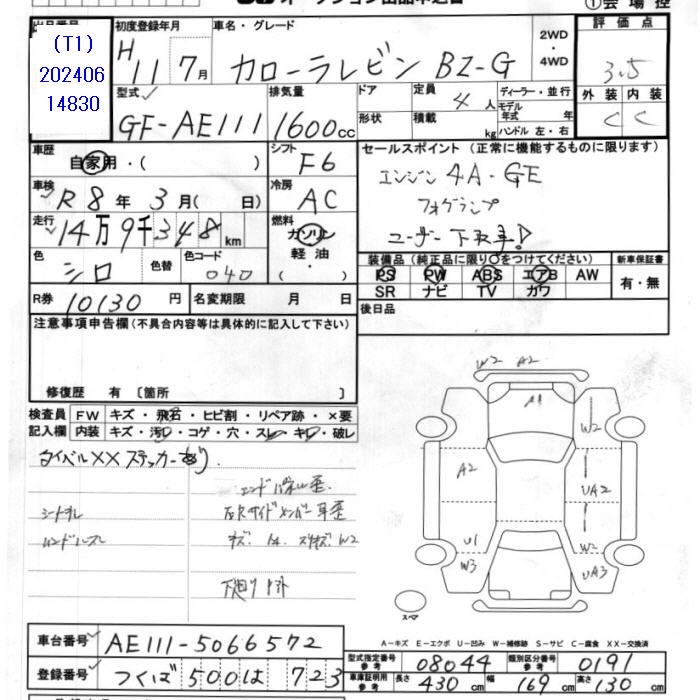 オークション出品申込書
①会場控
(T1)
202406
14830
初度登録年月
H11 7月
車名・グレード
カローラレビン BZ-G
2WD
・
4WD
評価点
3.5
外装 内装
C C
型式
GF-AE111
排気量
1600cc
ドア
定員
4人
形状
積載
kg
ディーラー・並行
モデル年式 年
ハンドル 左・右
車歴
自家用・( )
シフト
F6
車検
R8年 3月( 日)
冷房
AC
走行
14万9千348km
燃料
ガソリン
軽油
( )
色
シロ
色替
色コード
040
R券
10130円
名変期限 月 日
セールスポイント(正常に機能するものに限ります)
エンジン 4A-GE
フォグランプ
ユーザー下取車!
装備品(純正品に限り○をつけてください)
新車保証書
PS PW ABS エアB AW
SR ナビ TV カワ
有・無
後日品
注意事項申告欄(不具合内容等は具体的に記入して下さい)
修復歴 有 〔箇所 〕
検査員記入欄
FW キズ・飛石・ヒビ割・リペア跡・×要
内装 キズ・汚レ・コゲ・穴・スレ・キレ・破レ
タイベル×× ステッカーあり
エンドパネル歪
シートスレ
左Rサイドメンバー耳歪
ハンドルスレ
下廻りサビ
W2 A2
A1
W2
A2
UA2
U1
W2
W3
UA3
スペア
A-キズ E-エクボ U-凹み W-補修跡 S-サビ C-腐食 XX-交換済
車台番号
AE111-5066572
登録番号
つくば 500 は 723
型式指定番号 参考
08044
類別区分番号 参考
0191
車車証明用 参考
長さ 430cm 幅 169cm 高さ 130cm